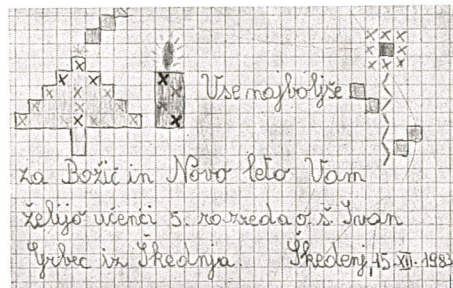 Vse najboljše
za Božič in Novo leto Vam
želijo učenci 5. razreda o.š. Ivan
Grbec iz Škednja. Škedenj, 15. XII. 1983